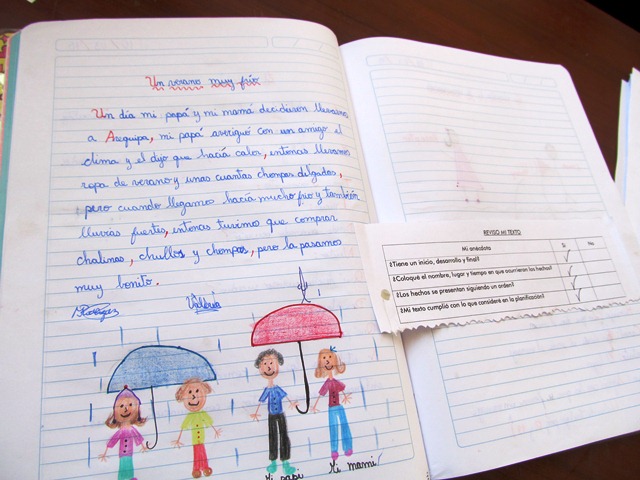 Un verano muy frío
Un día mi papá y mi mamá decidieron llevarnos
a Arequipa, mi papá averiguó con un amigo el
clima y el dijo que hacía calor, entonces llevamos
ropa de verano y unas cuantas chompas delgadas,
pero cuando llegamos hacía mucho frío y también
lluvias fuertes, entonces tuvimos que comprar
chalinas, chullos y chompas, pero la pasamos
muy bonito.
Valeria
Mi papi
Mi mami
REVISO MI TEXTO
Mi anécdota Sí No
¿Tiene un inicio, desarrollo y final?
¿Coloque el nombre, lugar y tiempo en que ocurrieron los hechos?
¿Los hechos se presentan siguiendo un orden?
¿Mi texto cumplió con lo que consideré en la planificación?